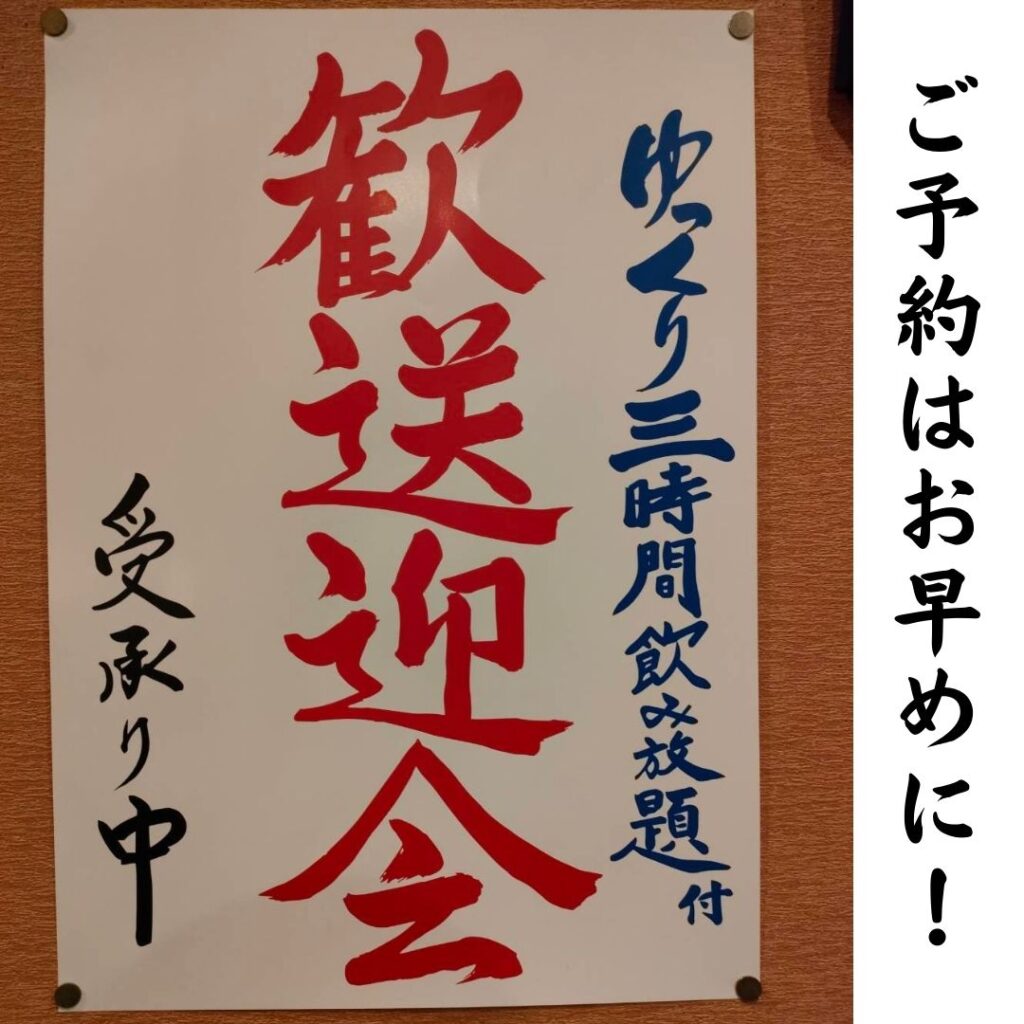 ご予約はお早めに！
ゆっくり三時間飲み放題付
歓送迎会
受承り中